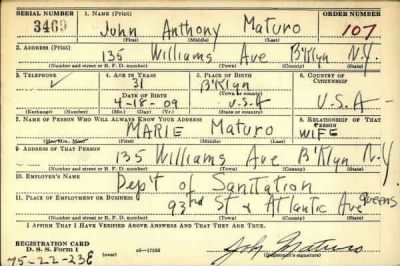 SERIAL NUMBER 1. NAME (Print) ORDER NUMBER
3469 John Anthony Maturo 107
(First) (Middle) (Last)
2. ADDRESS (Print)
135 Williams Ave B'klyn N.Y.
(Number and street or R. F. D. number) (Town) (County) (State)
3. TELEPHONE 4. AGE IN YEARS 5. PLACE OF BIRTH 6. COUNTRY OF CITIZENSHIP
31 B'klyn
DATE OF BIRTH (Town or county)
4-18-09 U.S.A U.S.A
(Exchange) (Number) (Mo.) (Day) (Yr.) (State or country)
7. NAME OF PERSON WHO WILL ALWAYS KNOW YOUR ADDRESS 8. RELATIONSHIP OF THAT PERSON
MARIE Maturo WIFE
(Mr., Mrs., Miss) (First) (Middle) (Last)
9. ADDRESS OF THAT PERSON
135 Williams Ave B'klyn N.Y
(Number and street or R. F. D. number) (Town) (County) (State)
10. EMPLOYER'S NAME
Dep't of Sanitation
11. PLACE OF EMPLOYMENT OR BUSINESS
93rd St & Atlantic Ave Queens
(Number and street or R. F. D. number) (Town) (County) (State)
I AFFIRM THAT I HAVE VERIFIED ABOVE ANSWERS AND THAT THEY ARE TRUE.
REGISTRATION CARD
D. S. S. Form 1 John Maturo
(Registrant's signature)